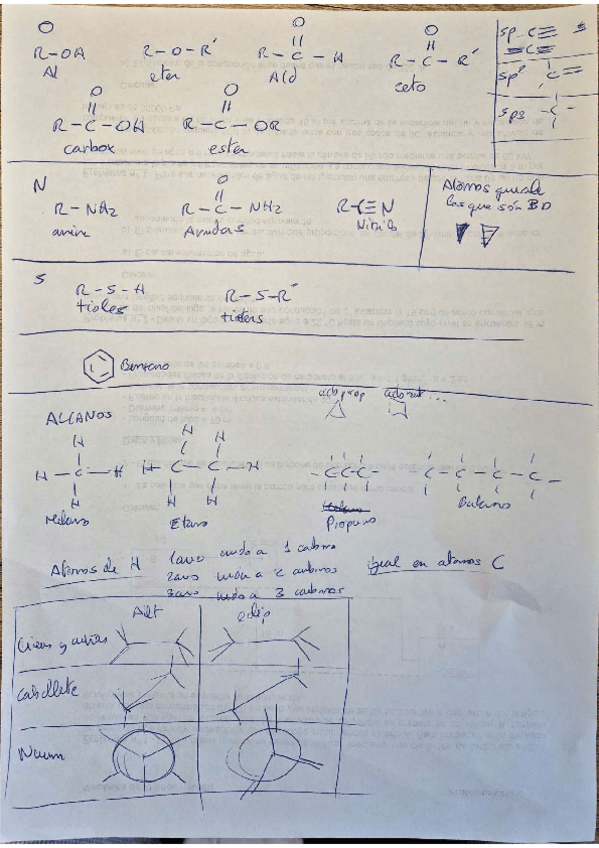 O
R-OH
Al
R-O-R'
eter
O
R-C-H
Ald
O
R-C-R'
ceto
sp -C≡
=C=
sp² C=
sp3 -C-
O
R-C-OH
carbox
O
R-C-OR
ester
N
R-NH2
amina
O
R-C-NH2
Amidas
R-C≡N
Nitrilo
Atomos quirales
los que son 3D
S
R-S-H
tioles
R-S-R'
Benceno
ALCANOS
H
H-C-H
H
Metano
H H
H-C-C-H
H H
Etano
-C-C-C-
Propano
-C-C-C-C-
Butano
Atomos de H
1ario unido a 1 carbono
2ario unido a 2 carbonos
3ario unido a 3 carbonos
igual en atomos C
Alt
eclip
Cuñas y
caballete
Newm